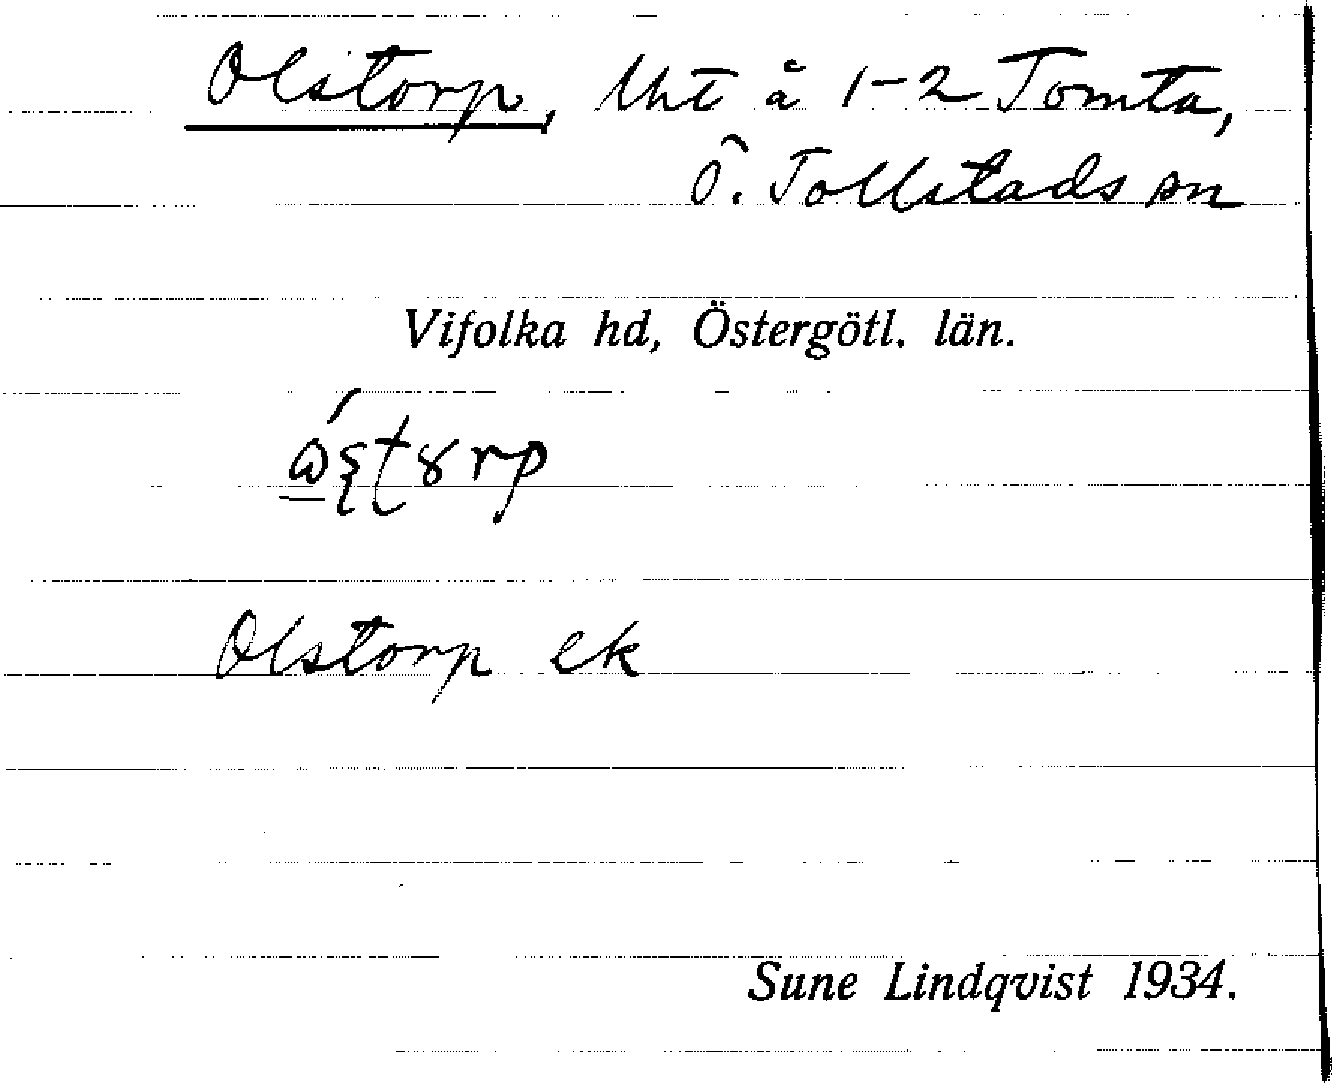 Olstorp, Uht å 1-2 Tomta,
Ö. Tollstads sn
Vifolka hd, Östergötl. län.
Olstorp ek
Sune Lindqvist 1934.